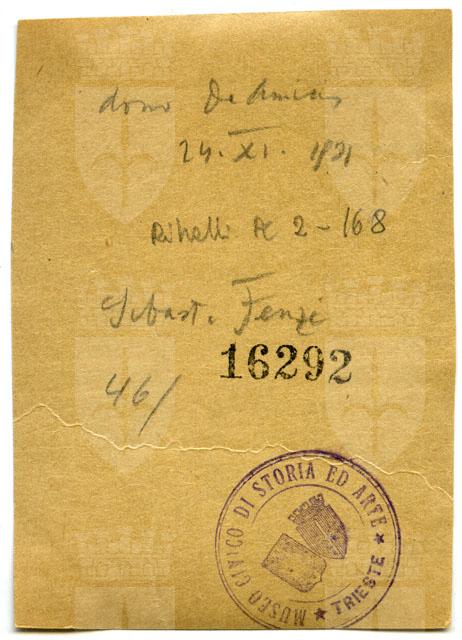 dono De Amicis
24. XI. 1921
Rihelli A 2 - 168
Sebast. Fenzi
16292
46/
MUSEO CIVICO DI STORIA ED ARTE
★ TRIESTE ★